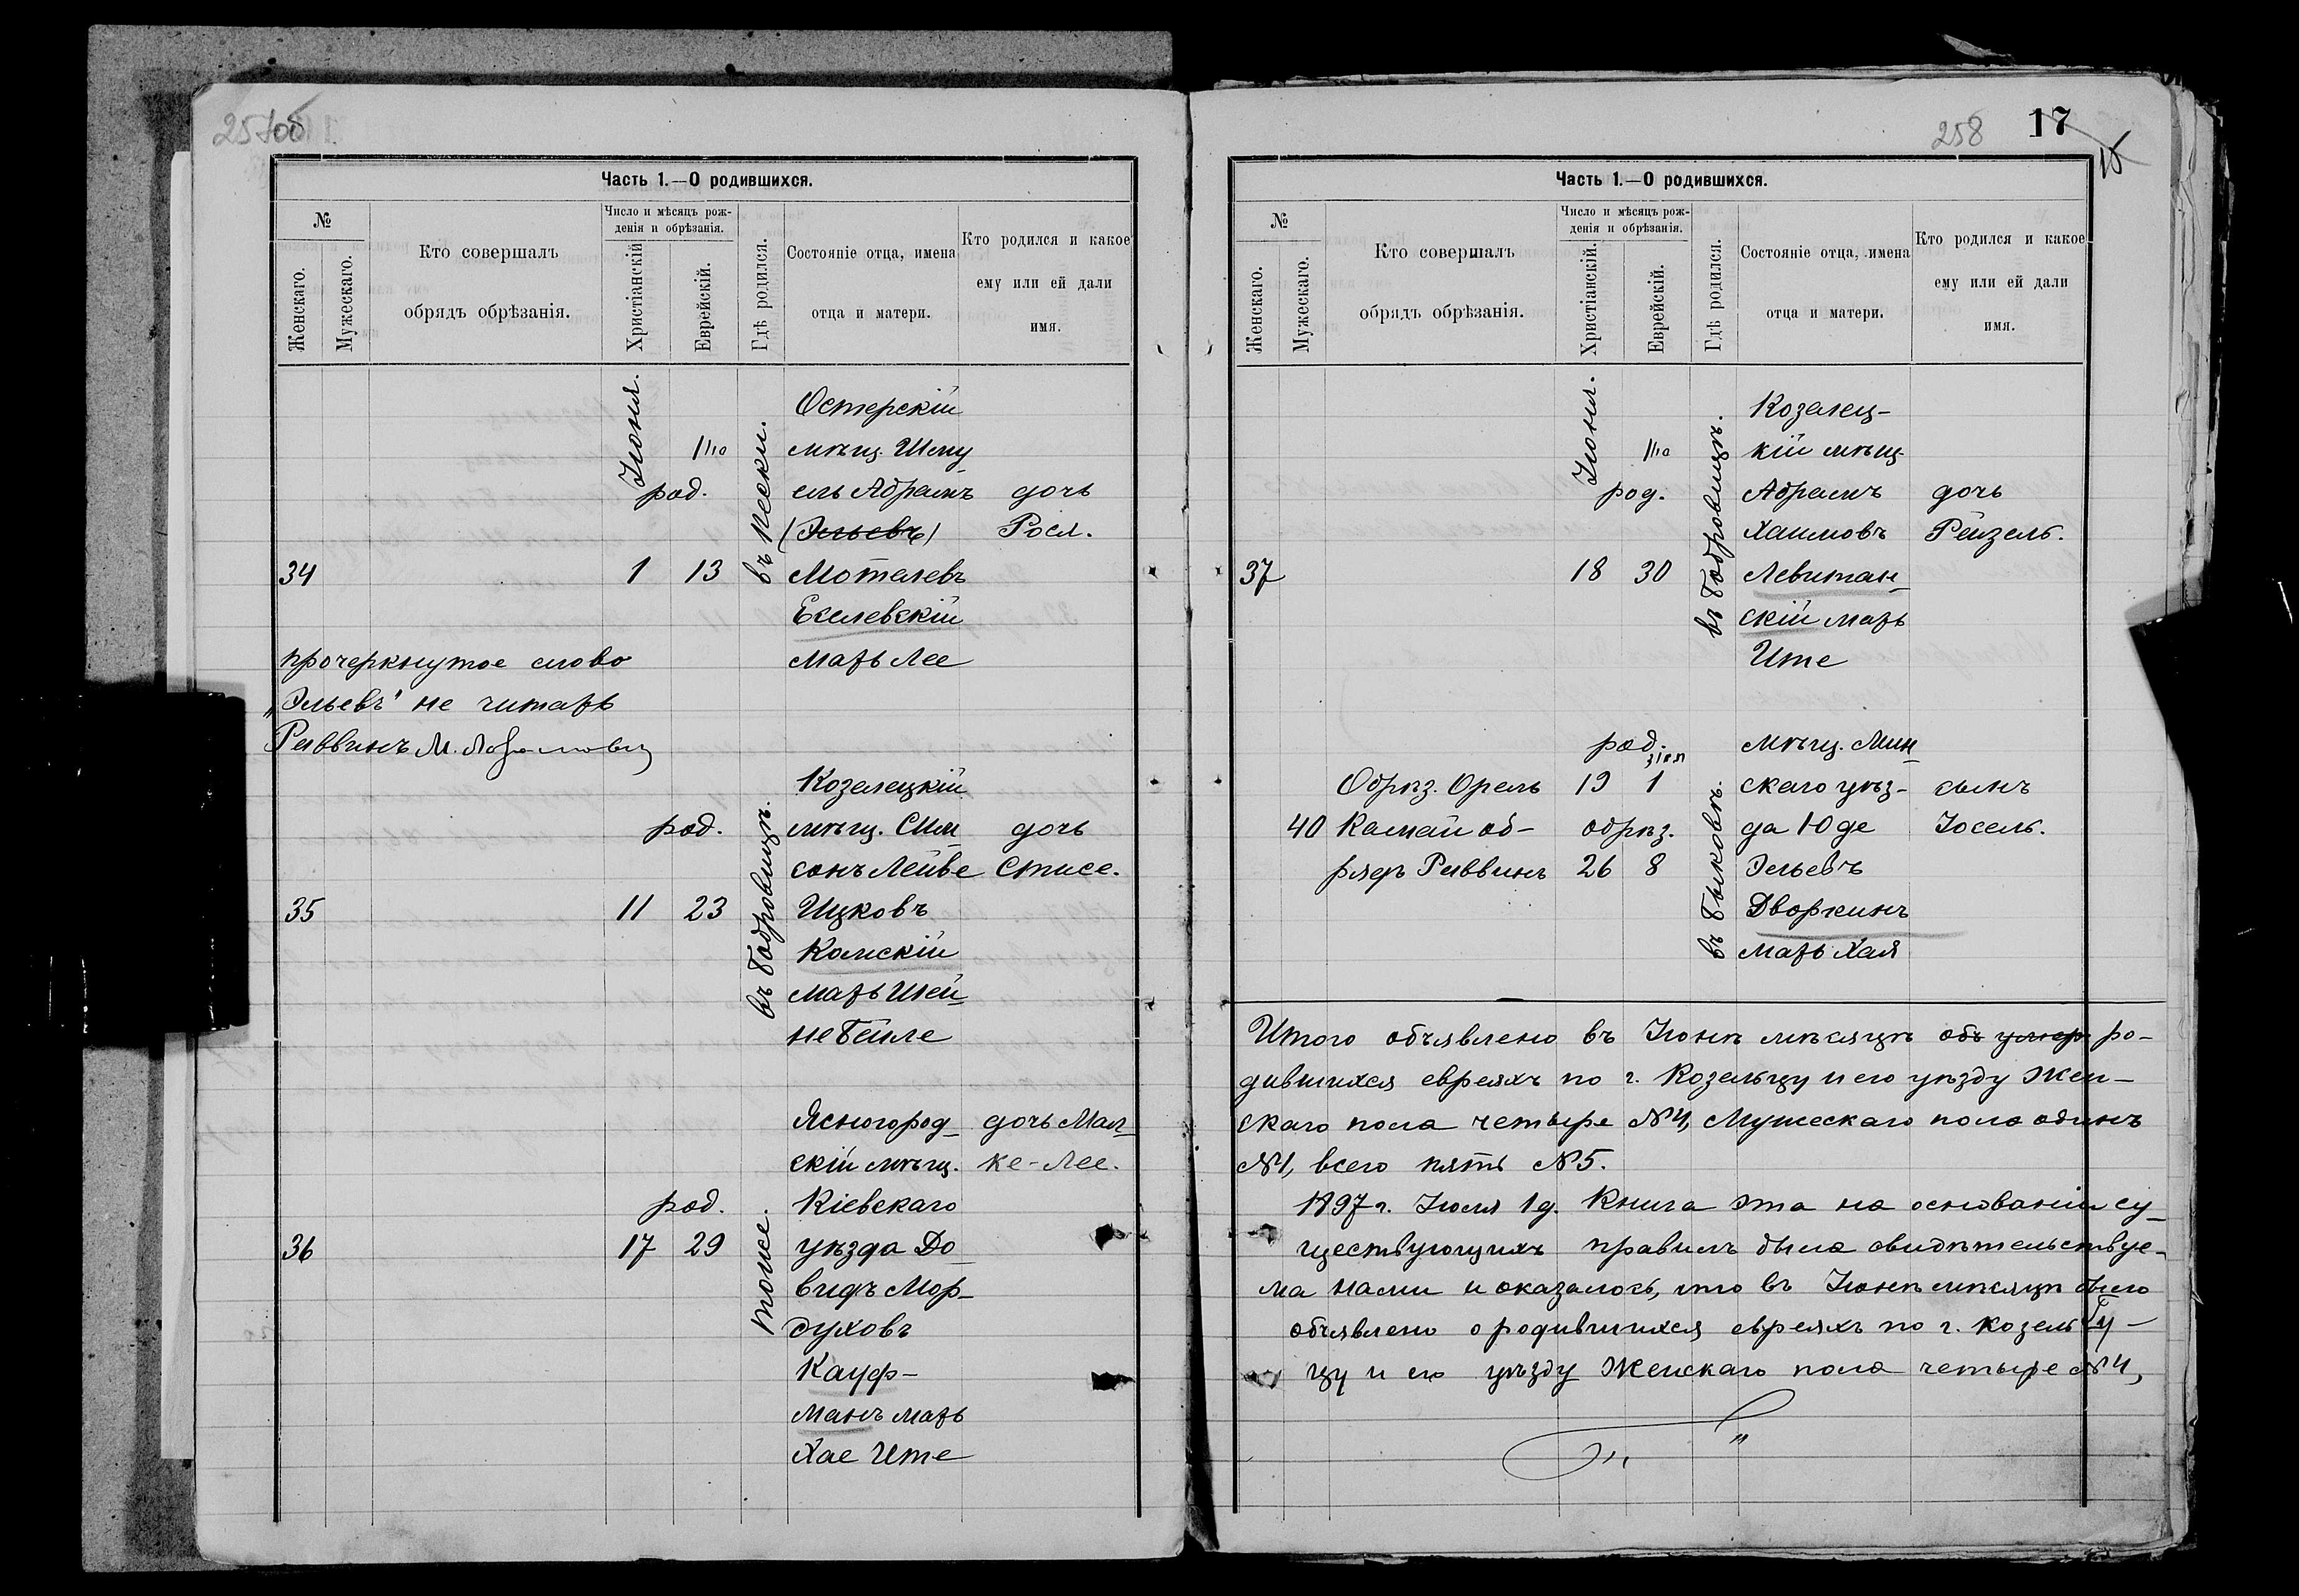 257об
Часть 1.—О родившихся.
№
Женскаго.
Мужескаго.
Кто совершалъ
обрядъ обрѣзанія.
Число и мѣсяцъ рож-
денія и обрѣзанія.
Христіанскій
Еврейскій.
Гдѣ родился.
Состояніе отца, имена
отца и матери.
Кто родился и какое
ему или ей дали
имя.
Іюня.
род.
34
1 13
въ Пески.
Остерскій
мѣщ. Шму
ель Абрамъ
(Эльевъ)
Моталевъ
Еселевскій
мать Лее
дочь
Рося.
прочеркнутое слово
„Эльевъ" не читать
Раввинъ М.
род.
35
11 23
въ Бобровицѣ.
Козелецкій
мѣщ. Сим
сонъ Лейбе
Ицковъ
Камскій
мать Шей
не Бейле
дочь
Стисе.
род.
36
17 29
тоже.
Ясногород
скій мѣщ.
Кіевскаго
уѣзда До
видъ Мор-
духовъ
Кауф-
манъ мать
Хае Ите
дочь Мал
ке-Лее.
258
17
Часть 1.—О родившихся.
№
Женскаго.
Мужескаго.
Кто совершалъ
обрядъ обрѣзанія.
Число и мѣсяцъ рож-
денія и обрѣзанія.
Христіанскій.
Еврейскій.
Гдѣ родился.
Состояніе отца, имена
отца и матери.
Кто родился и какое
ему или ей дали
имя.
Іюня.
род.
37
18 30
въ Бобровицѣ.
Козелец-
кій мѣщ.
Абрамъ
Хаимовъ
Левитан
скій мать
Ите
дочь
Рейзель.
40
Обрѣз. Орель
Камай об-
рядъ Раввинъ
род.
19 1
обрѣз.
26 8
въ Быковѣ.
мѣщ. Мин
скаго уѣз-
да Юде
Эльевъ
Дворкинъ
мать Хая
сынъ
Іосель.
Итого объявлено въ Іюнѣ мѣсяцѣ объ умер ро-
дившихся евреяхъ по г. Козельцу и его уѣзду Жен-
скаго пола четыре №4, Мужескаго пола одинъ
№1, всего пять №5.
1897 г. Іюля 1 д. Книга эта на основаніи су-
ществующихъ правилъ была свидѣтельствуе-
ма нами и оказалось, что въ Іюнѣ мѣсяцѣ было
объявлено о родившихся евреяхъ по г. Козель
цу и его уѣзду Женскаго пола четыре №4,